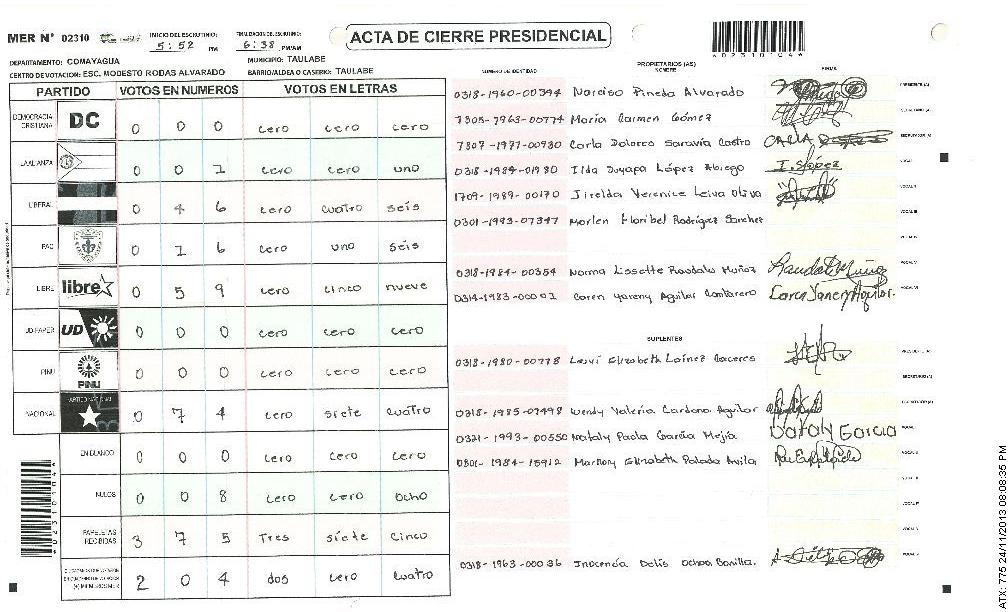 MER Nº 02310
INICIO DEL ESCRUTINIO:
5:52 PM
FINALIZACION DEL ESCRUTINIO:
6:38 PM/AM
ACTA DE CIERRE PRESIDENCIAL
*02310104*
DEPARTAMENTO: COMAYAGUA
MUNICIPIO: TAULABE
CENTRO DE VOTACION: ESC. MODESTO RODAS ALVARADO
BARRIO/ALDEA O CASERIO: TAULABE
PARTIDO VOTOS EN NUMEROS VOTOS EN LETRAS
DEMOCRACIA CRISTIANA DC 0 0 0 cero cero cero
LA ALIANZA 0 0 1 cero cero uno
LIBERAL 0 4 6 cero cuatro seis
PAC 0 1 6 cero uno seis
LIBRE libre 0 5 9 cero cinco nueve
UD-FAPER UD 0 0 0 cero cero cero
PINU PINU 0 0 0 cero cero cero
NACIONAL 0 7 4 cero siete cuatro
EN BLANCO 0 0 0 cero cero cero
NULOS 0 0 8 cero cero ocho
PAPELETAS RECIBIDAS 3 7 5 Tres siete cinco
2 0 4 dos cero cuatro
NUMERO DE IDENTIDAD
PROPIETARIOS (AS)
NOMBRE
FIRMA
0318-1960-00394 Narciso Pineda Alvarado PRESIDENTE (A)
María Carmen Gómez SECRETARIO (A)
Carla Dolores Saravia Castro ESCRUTADOR (A)
0318-1984-01980 Ilda Suyapa López Abiego I. S López VOCAL I
1709-1989-00170 Jirelda Verenice Leiva Oliva VOCAL II
0301-1993-07347 Marlen Floribel Rodríguez Sanchez VOCAL III
0318-1984-00354 Norma Lissette Raudales Muñoz VOCAL V
0314-1983-00001 Caren Yaneny Aguilar Cantarero VOCAL VI
SUPLENTES
0318-1980-00778 Lesvi Elizabeth Laínez Caceres PRESIDENTE (A)
SECRETARIO (A)
0318-1985-07498 Wendy Valeria Cardona Aguilar ESCRUTADOR (A)
0321-1993-00550 Nataly Paola García Mejía Nataly García VOCAL I
0801-1984-15912 Elizabeth Avila VOCAL II
0318-1963-00036 Inocencia Delis Ochoa Bonilla.
*02310104*
ATX: 775 24/11/2013 08:08:35 PM